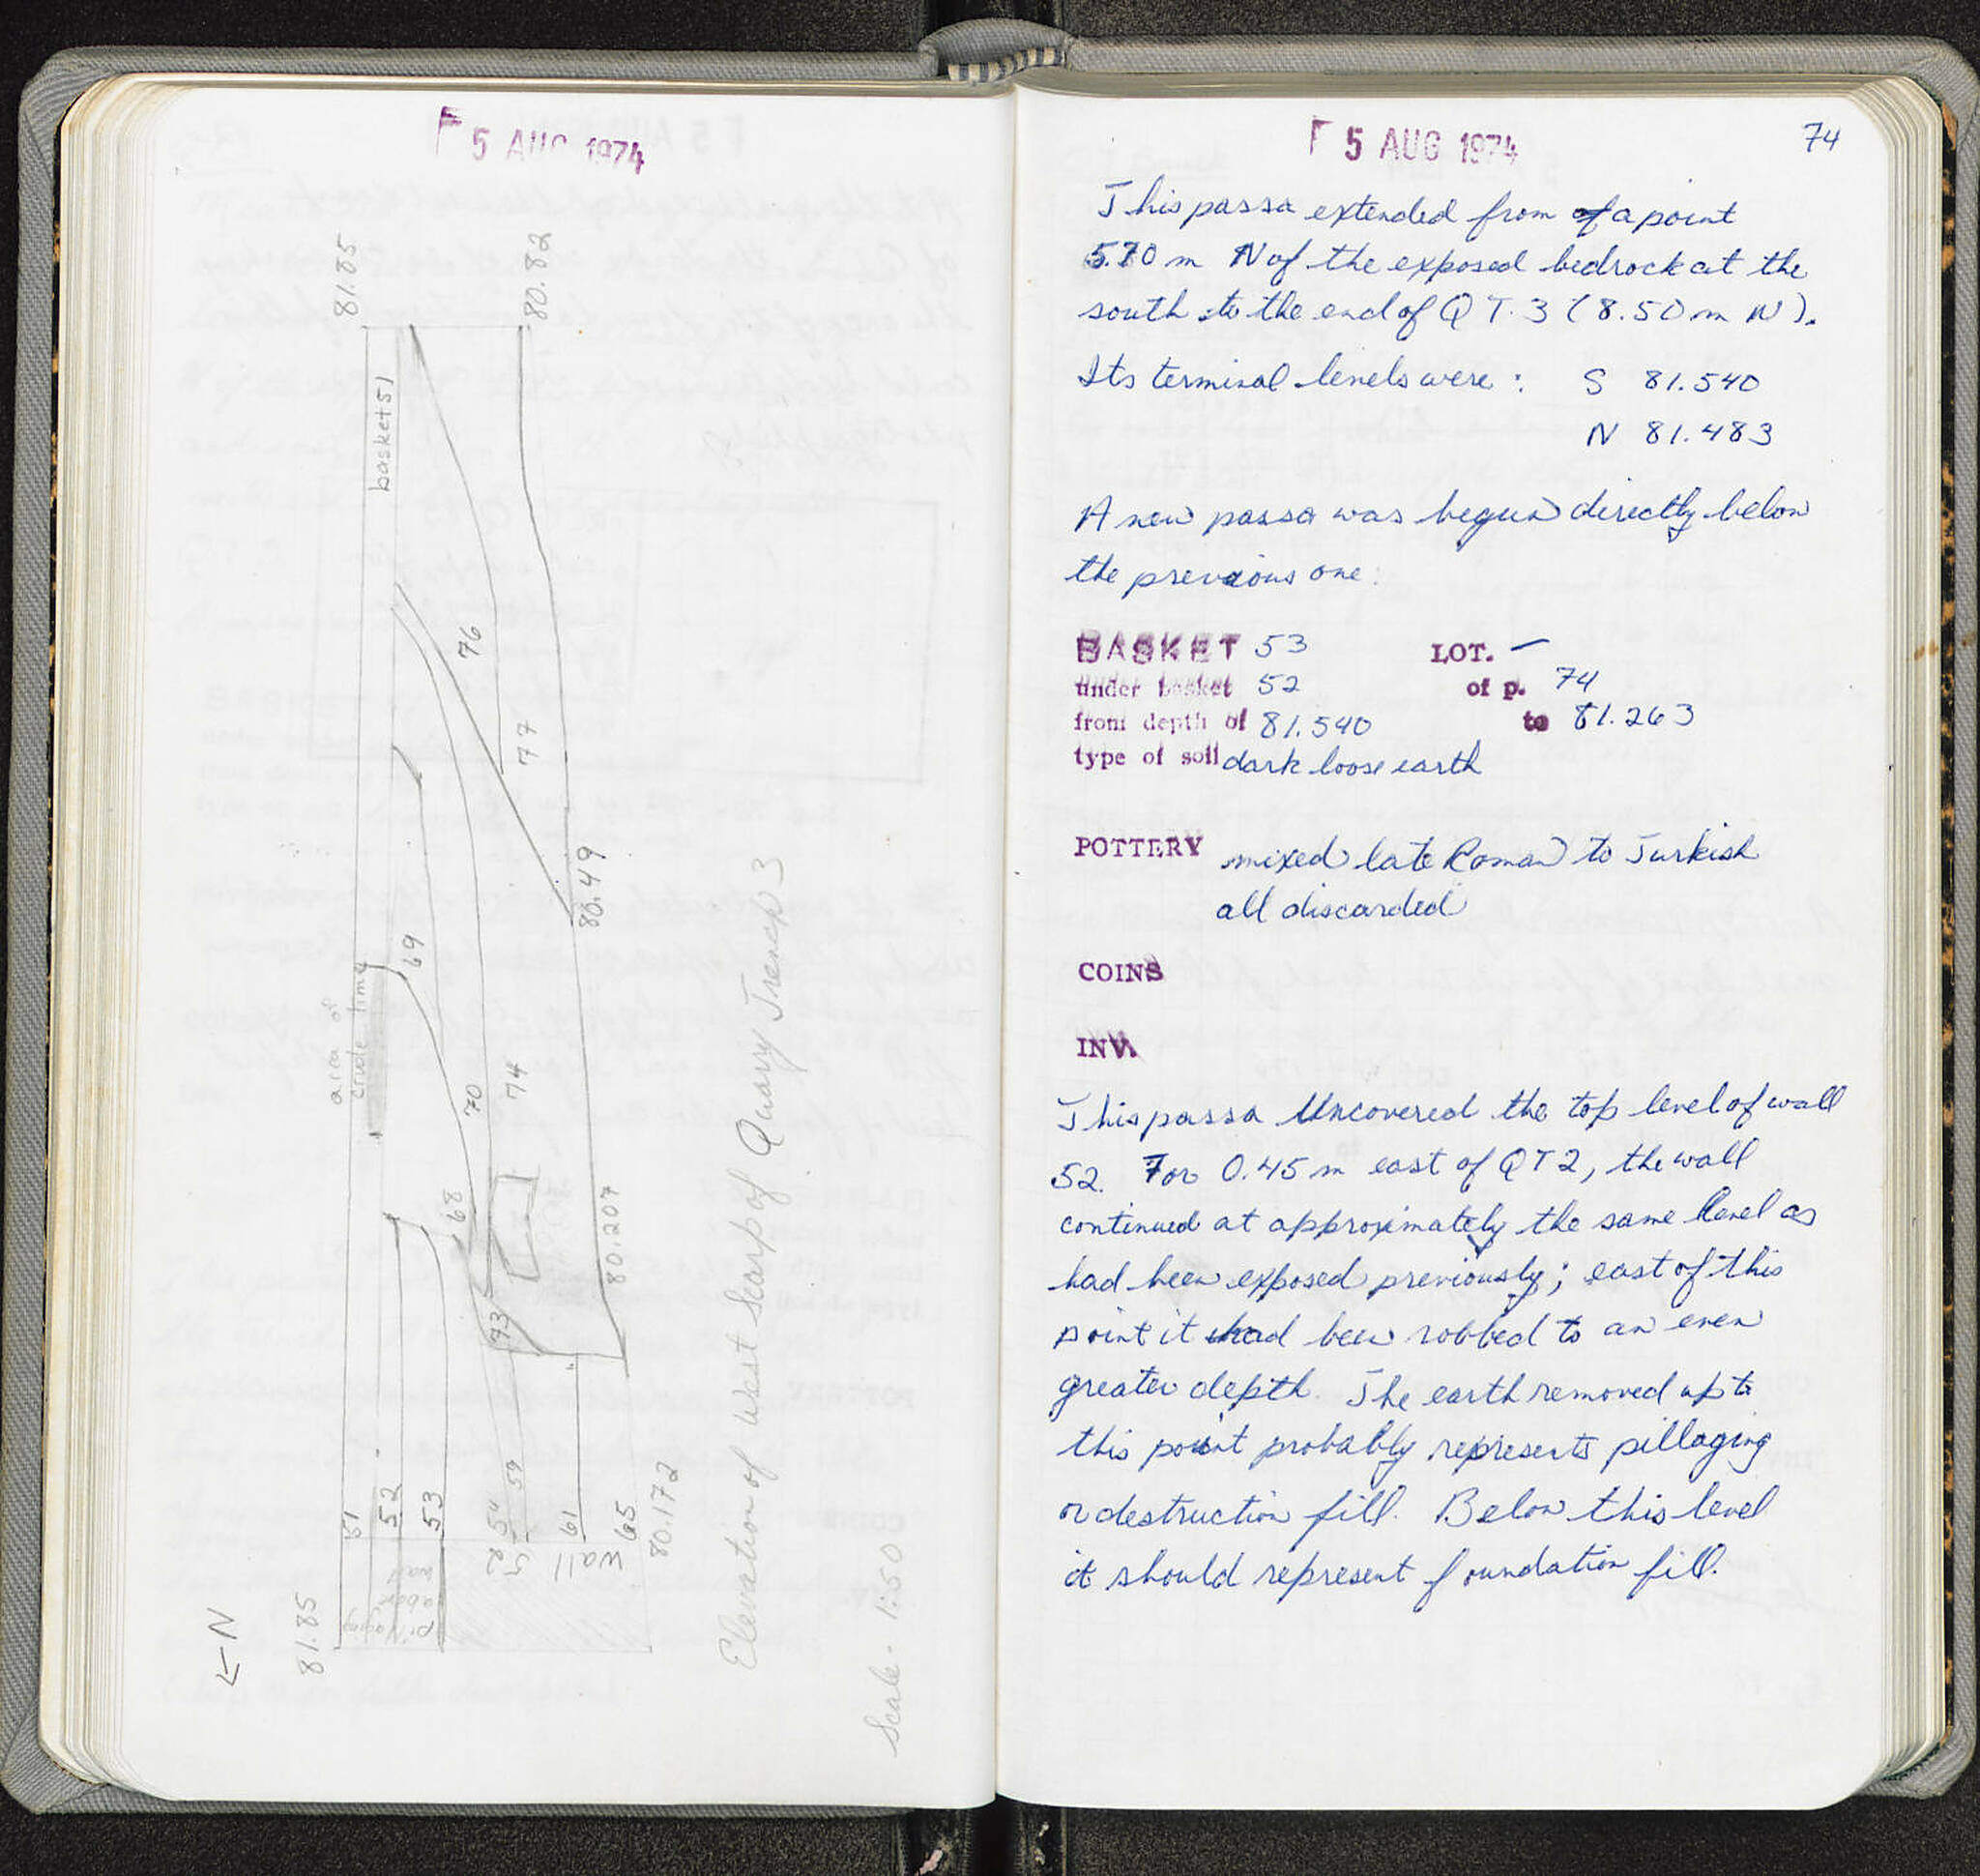 F 5 AUG 1974
81.85
80.82
basket 51
76
77
80.49
69
area of
crude lime
70
74
68
80.207
73
51
52
53
54
59
61
65
80.172
wall
52
wall
pillaging
above
wall
81.85
←N
Elevation of West Scarp of Quarry Trench 3
Scale - 1:50
F 5 AUG 1974
74
This passa extended from of a point
5.70 m N of the exposed bedrock at the
south to the end of QT.3 (8.50 m N).
Its terminal levels were: S 81.540
N 81.483
A new passa was begun directly below
the previous one:
BASKET 53 LOT. —
under basket 52 of p. 74
from depth of 81.540 to 81.263
type of soil dark loose earth
POTTERY mixed late Roman to Turkish
all discarded
COINS
INV.
This passa uncovered the top level of wall
52. For 0.45 m east of QT2, the wall
continued at approximately the same level as
had been exposed previously; east of this
point it had been robbed to an even
greater depth. The earth removed up to
this point probably represents pillaging
or destruction fill. Below this level
it should represent foundation fill.